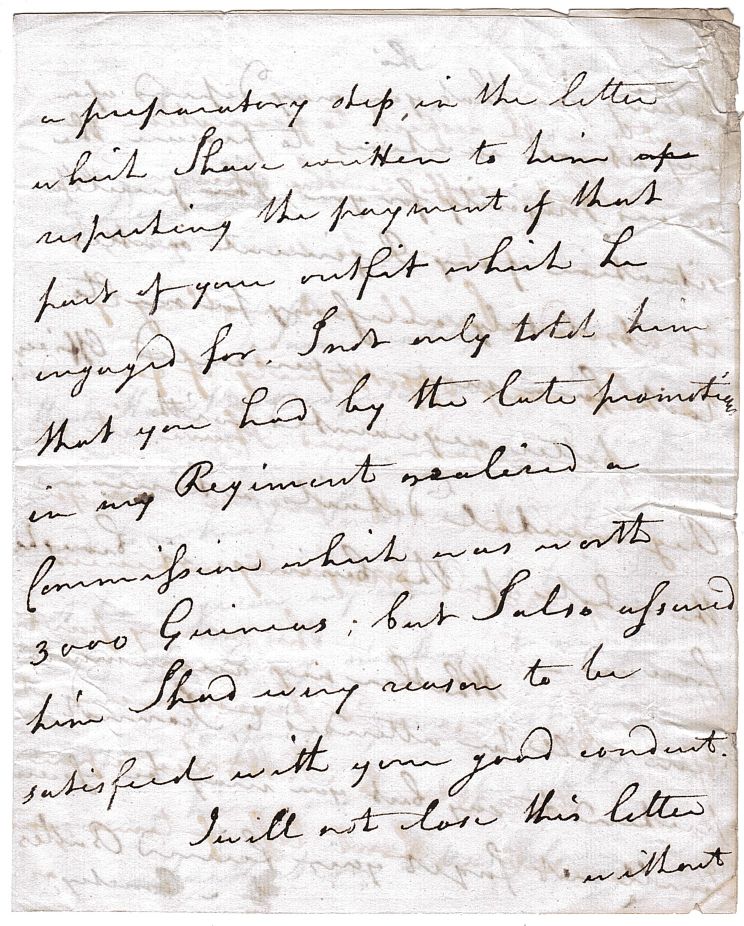 a preparatory step, in the letter
which I have written to him
respecting the payment of that
part of your outfit which he
engaged for. I not only told him
that you had by the late promotion
in my Regiment realised a
Commission which was worth
3000 Guineas; but I also assured
him I had every reason to be
satisfied with your good conduct.
I will not close this letter
without